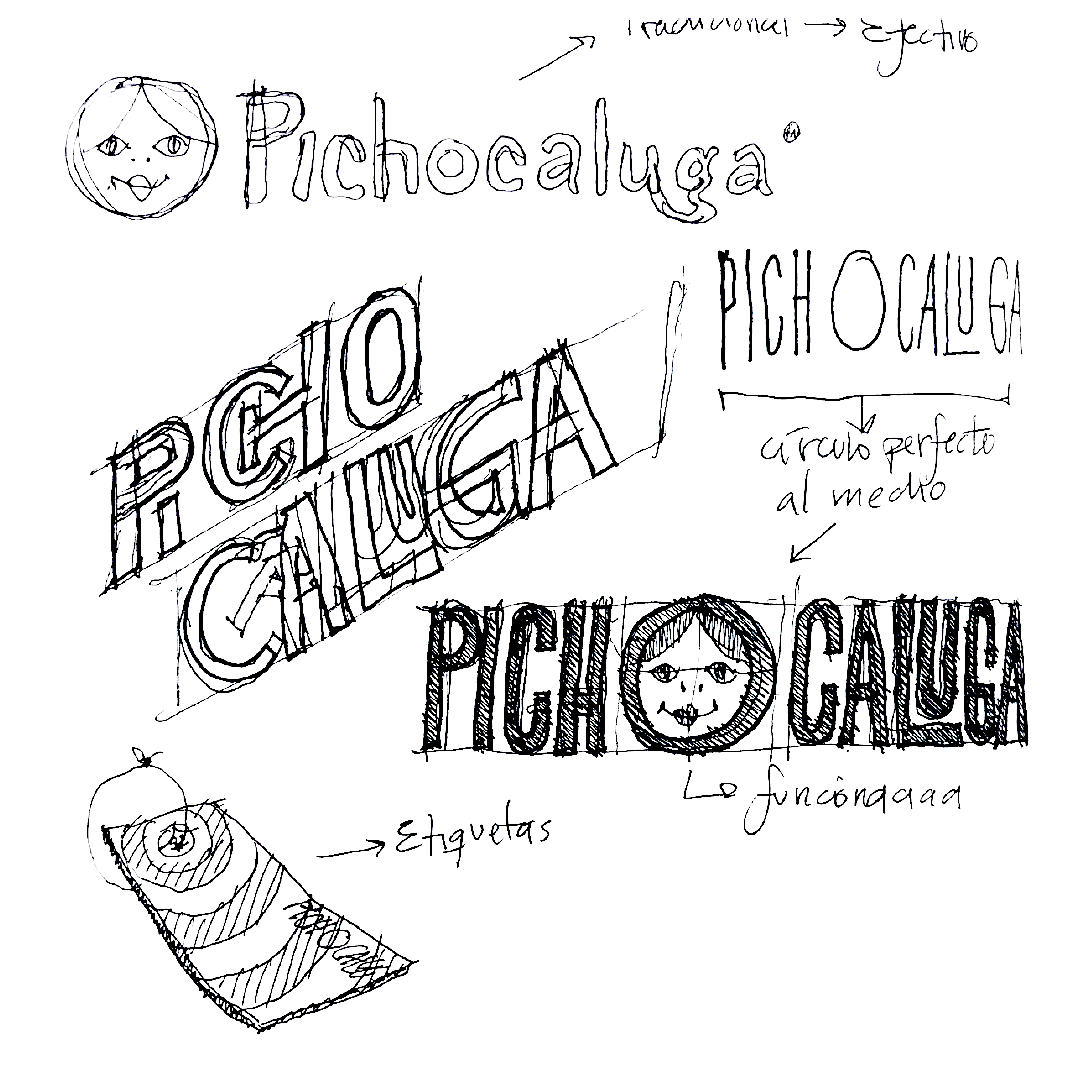 Tradicional → Efectivo
Pichocaluga
PICHOCALUGA
PICHO
CALUGA
círculo perfecto
al medio
PICHOCALUGA
funcionaaaa
Etiquetas